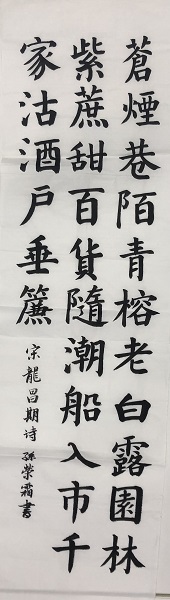 蒼煙巷陌青榕老白露園林
紫蔗甜百貨隨潮船入市千
家沽酒戶垂簾
宋龍昌期诗孫榮霜書